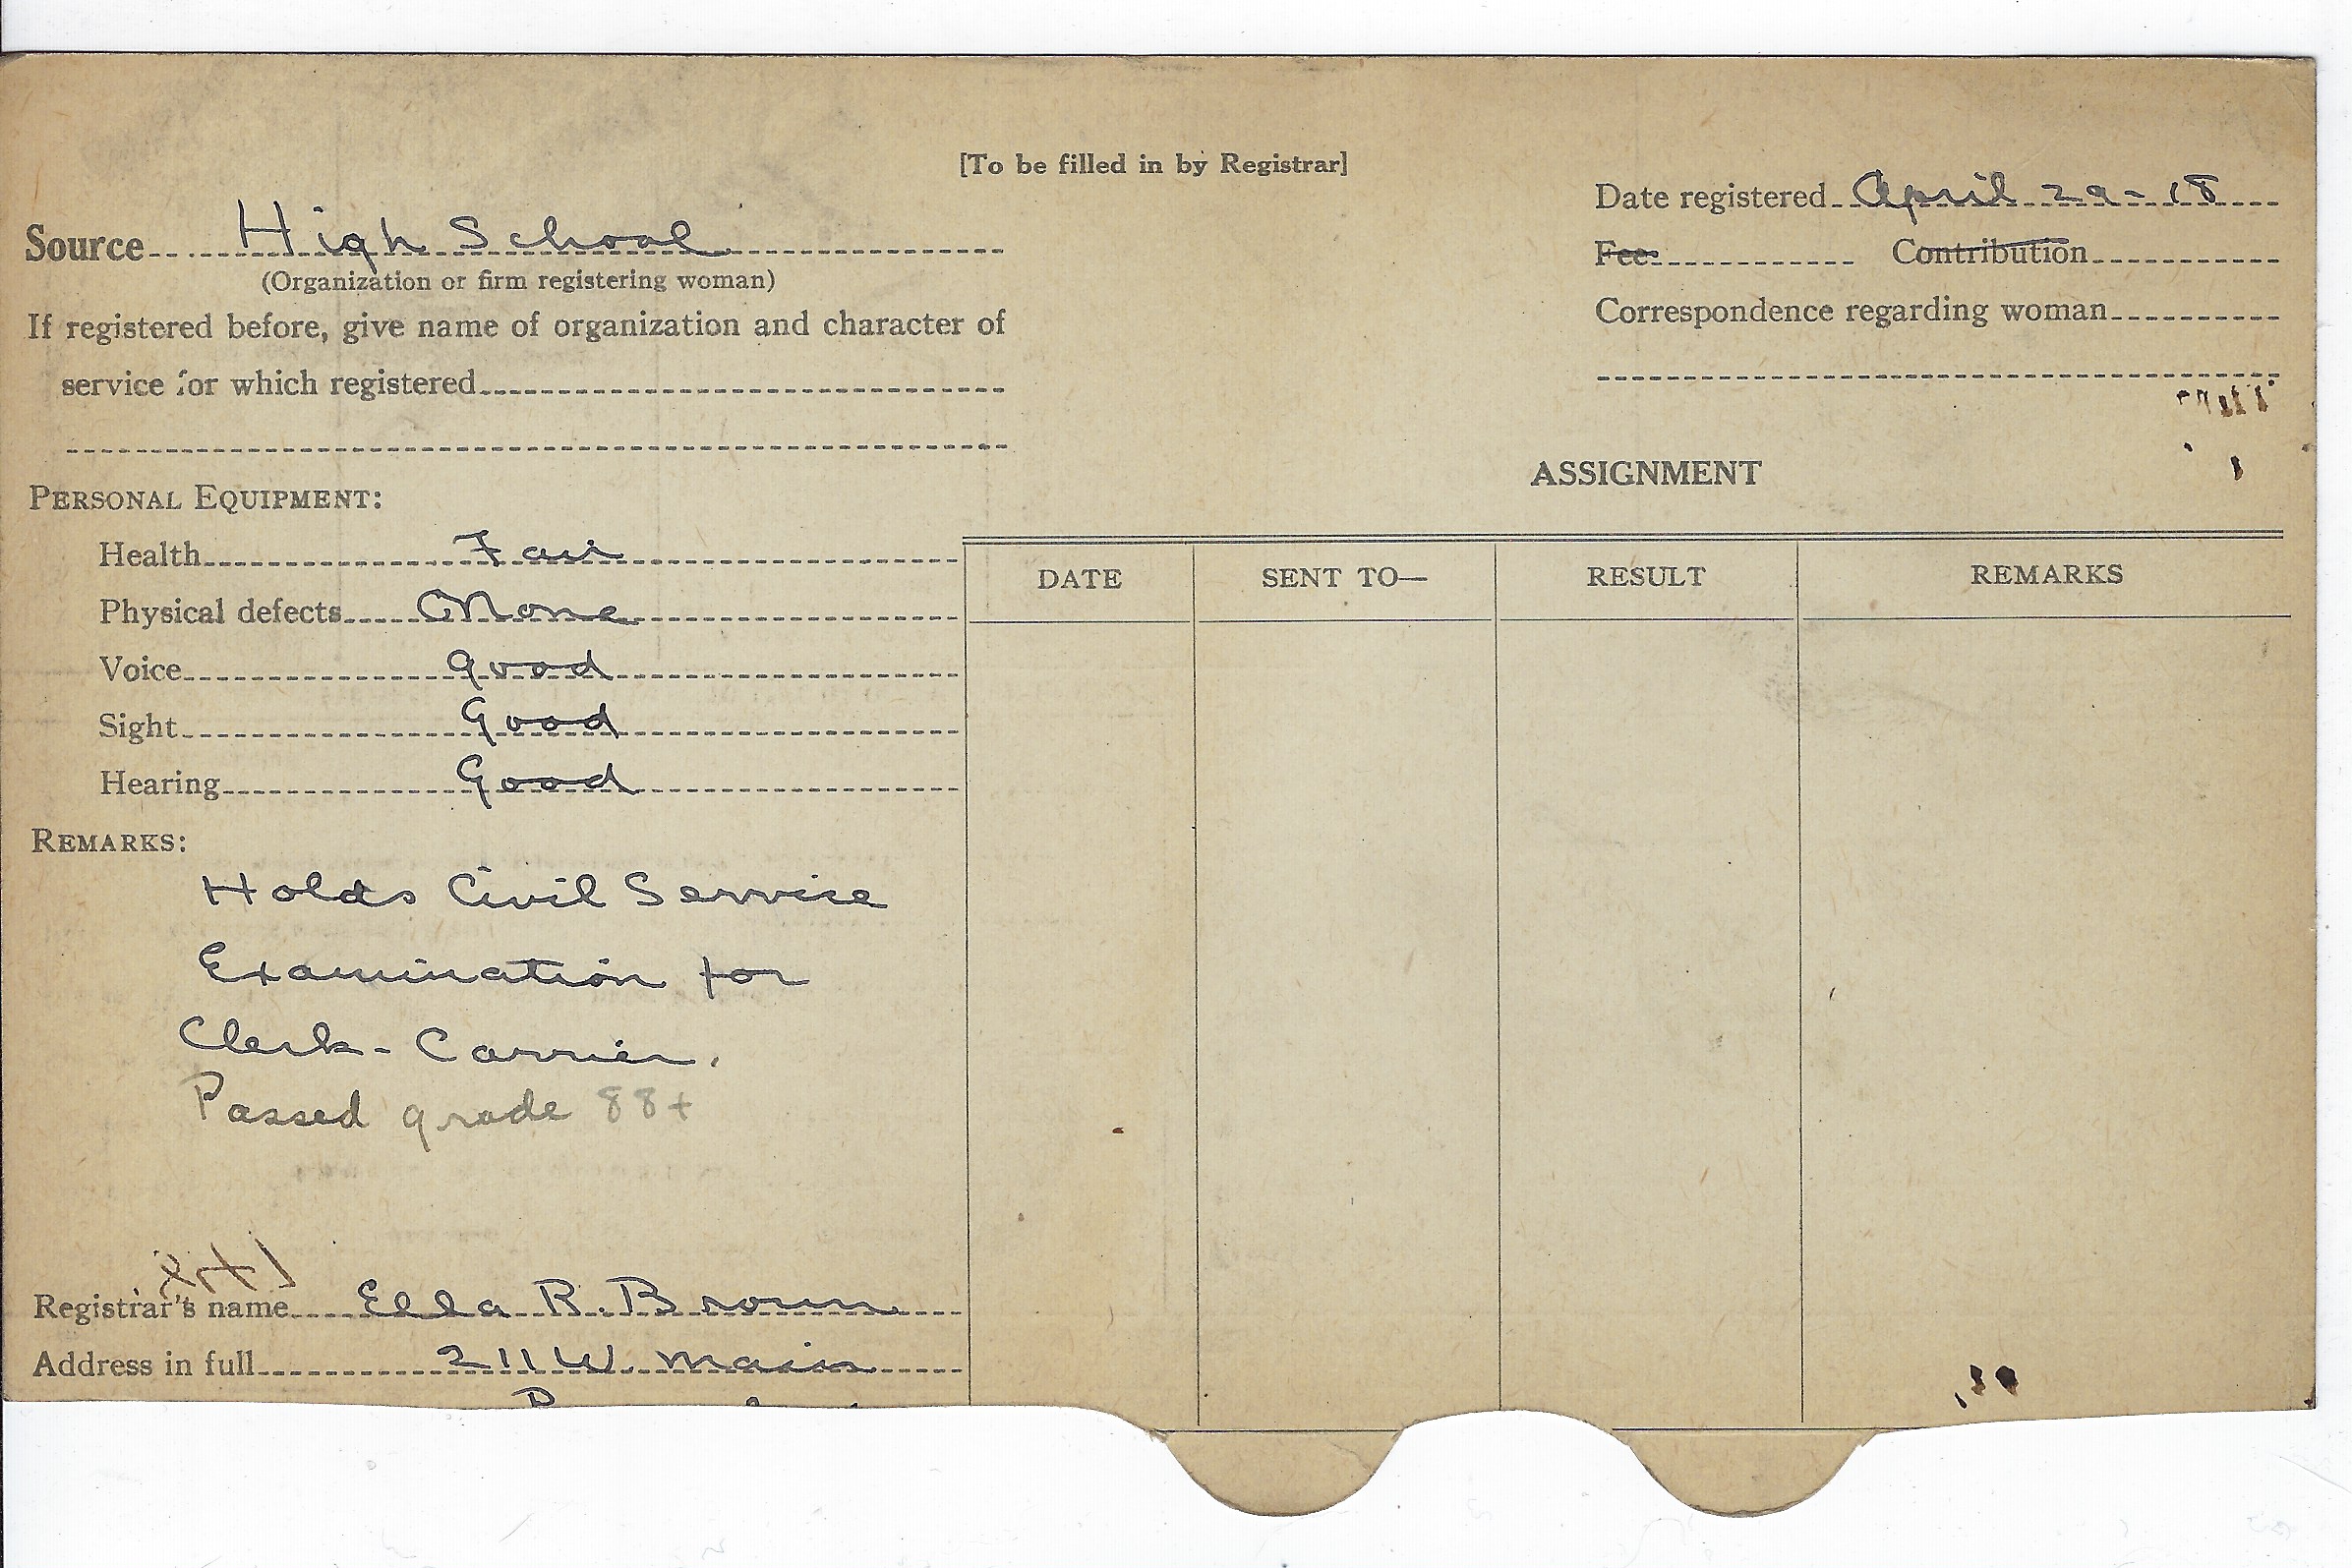 [To be filled in by Registrar]
Date registered April 29-18
Source High School
(Organization or firm registering woman)
Fee Contribution
If registered before, give name of organization and character of
Correspondence regarding woman
service for which registered
ASSIGNMENT
PERSONAL EQUIPMENT:
Health Fair
Physical defects None
Voice good
Sight Good
Hearing Good
DATE SENT TO— RESULT REMARKS
REMARKS:
Holds Civil Service
Examination for
Clerk-Carrier.
Passed grade 88+
Registrar's name Ella R. Brown
Address in full 211 W. Main